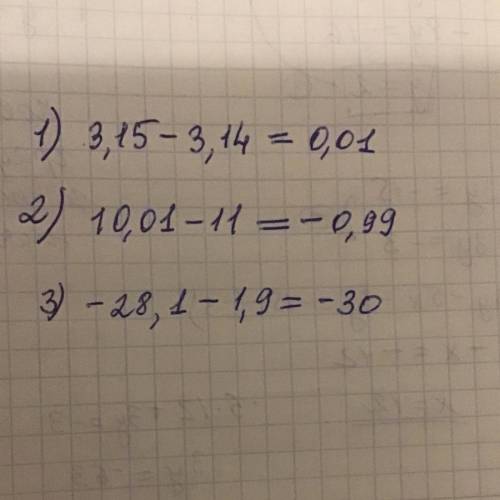 1) 3,15 - 3,14 = 0,01
2) 10,01 - 11 = -0,99
3) -28,1 - 1,9 = -30